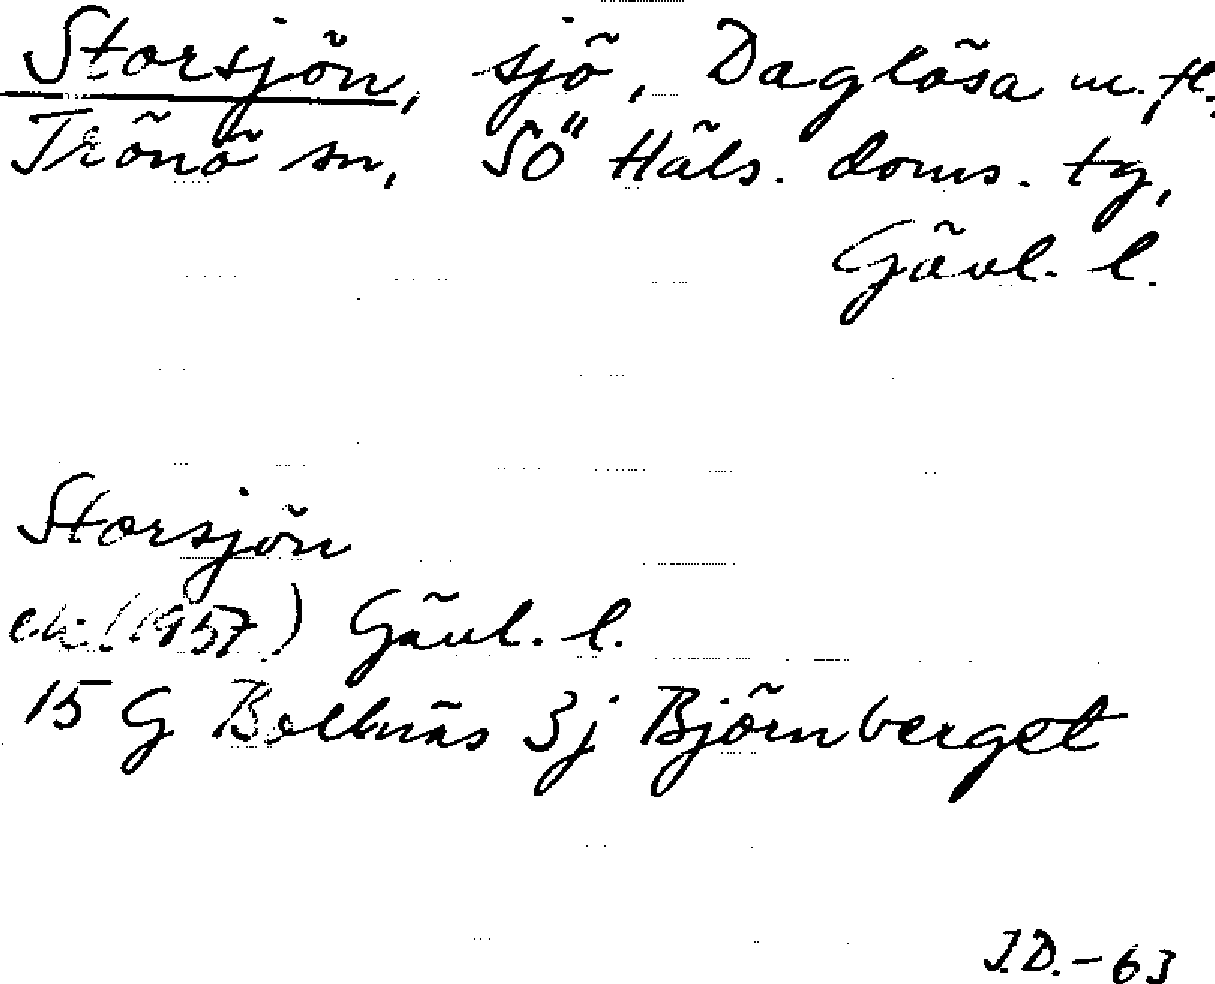 Storsjön, sjö, Daglösa m. fl.,
Trönö sn, SÖ Häls. doms. tg,
Gävl. l.
Storsjön
ek. (1957) Gävl. l.
15 G Bollnäs 3j Björnberget
J.D. - 63